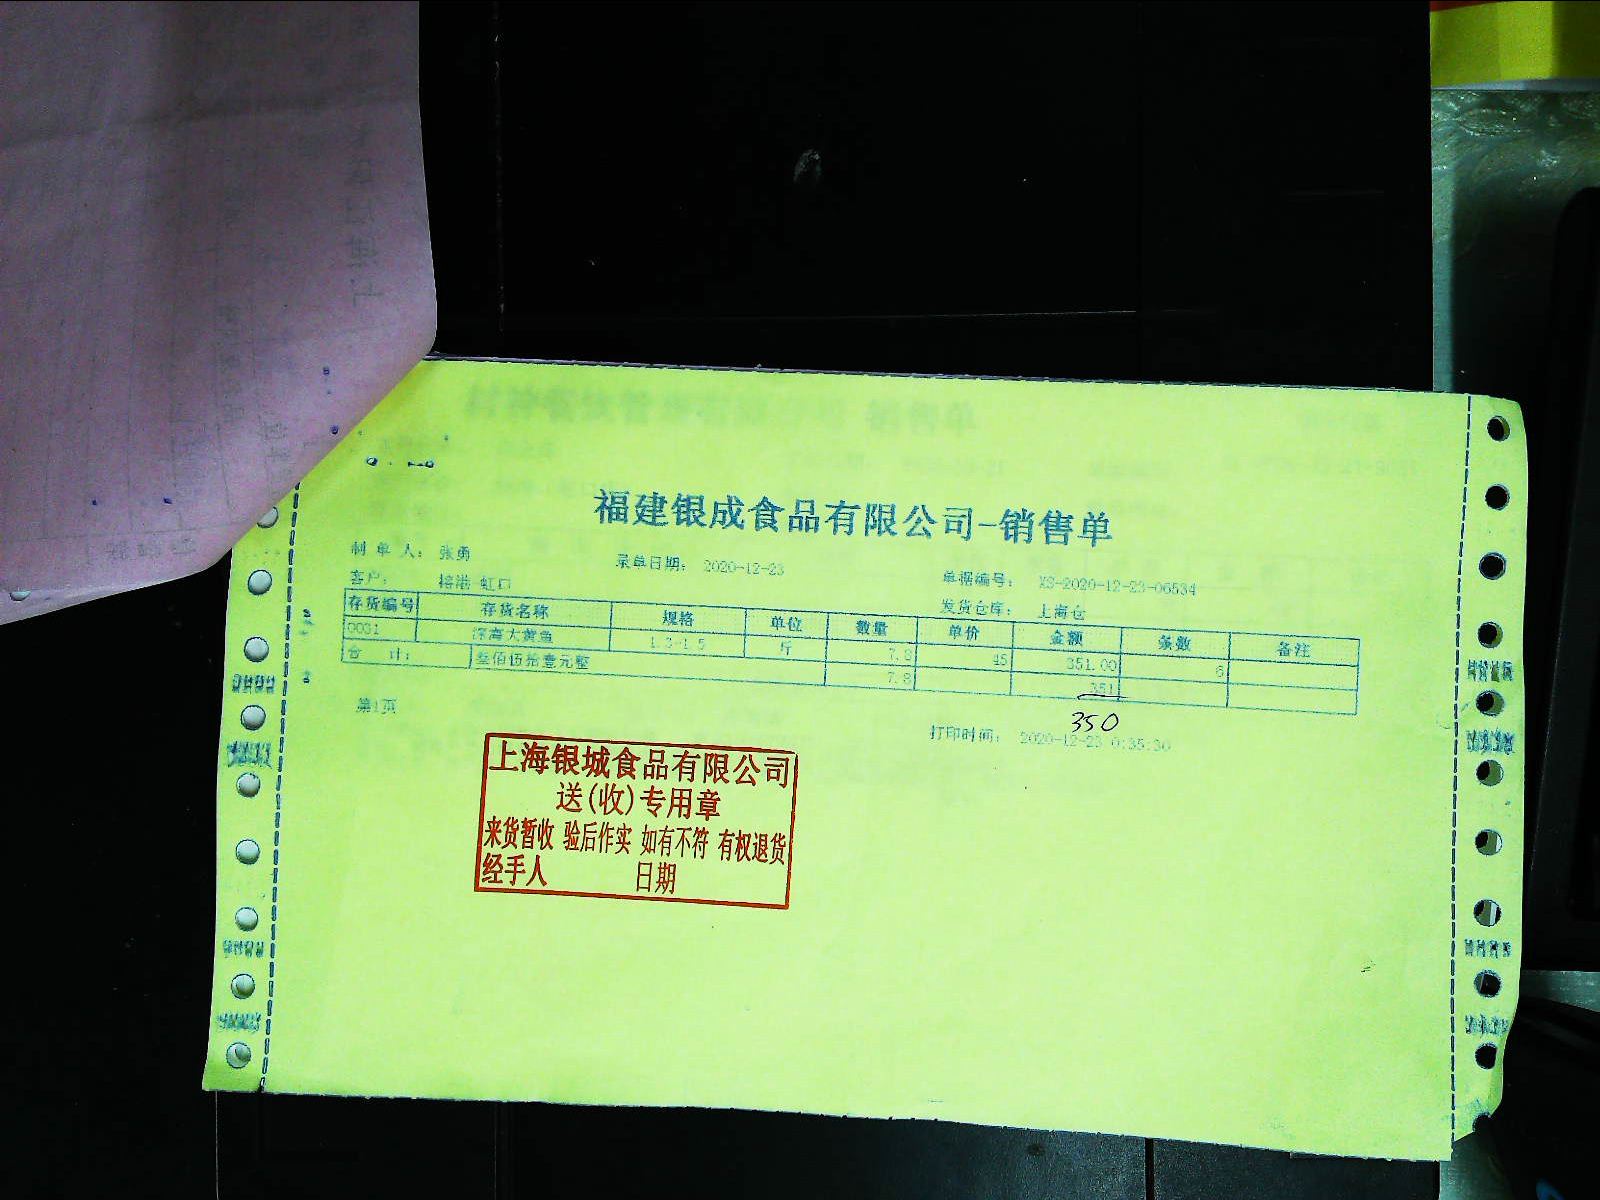 福建银成食品有限公司-销售单
制 单 人： 张勇 录单日期： 2020-12-23 单据编号： XS-2020-12-23-06534
客户： 榕港-虹口 发货仓库： 上海仓
存货编号 存货名称 规格 单位 数量 单价 金额 条数 备注
0031 深海大黄鱼 1.3-1.5 斤 7.8 45 351.00 6
合 计： 叁佰伍拾壹元整 7.8 351
350
第1页 打印时间： 2020-12-23 0:35:30
上海银城食品有限公司
送(收)专用章
来货暂收 验后作实 如有不符 有权退货
经手人 日期